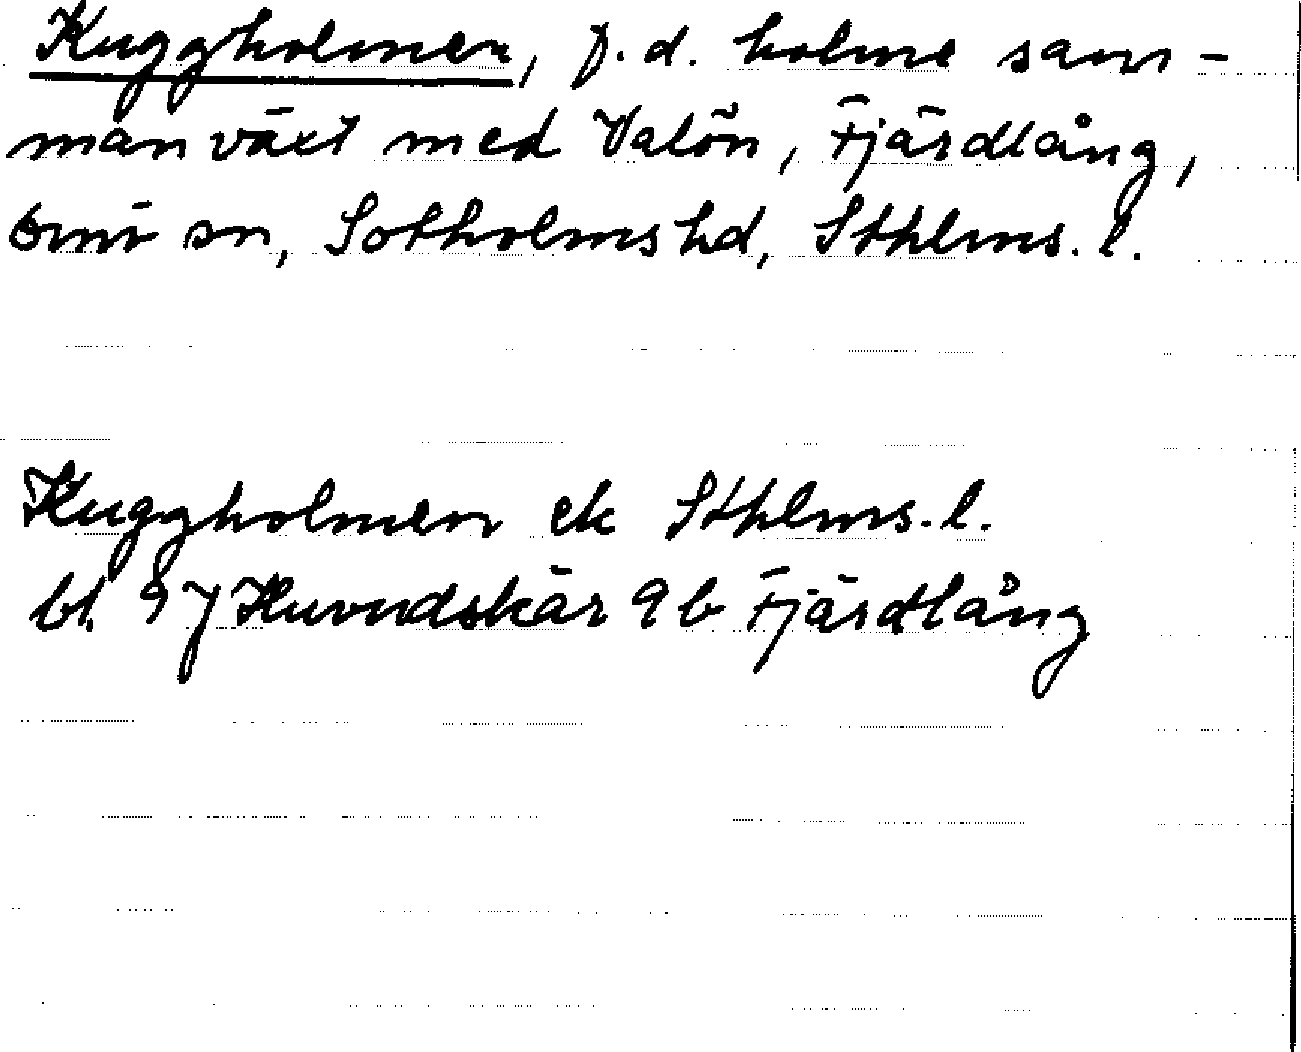 Kuggholmen, f.d. holme sam-
manväxt med Valön, Fjärdlång,
Ornö sn, Sotholms hd, Sthlms. l.
Kuggholmen ek Sthlms. l.
bl. 9J Huvudskär 9b Fjärdlång